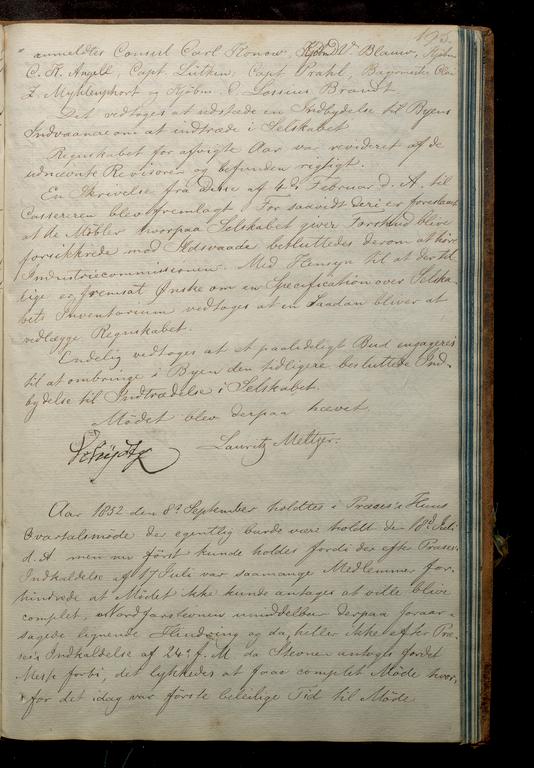 195.
anmeldtes Consul Carl Konow, Kjøbmd Vm Blauw, Kjøbm
C. K. Angell, Capt Lütken, Capt Prahl, Bagermester Claus
Z. Myhlenphort og Kjøbm. C. Lossius Brandt.
Det vedtoges at udstæde en Indbydelse til Byens
Indvaanere om at indtræde i Selskabet
Regnskabet for afvigte Aar var revideret af de
udnævnte Revisorer og befunden rigtigt.
En Skrivelse fra Disse af 4de Februar d. A. til
Cassereren blev fremlagt. For saavidt deri er foreslaaet
at de Møbler hvorpaa Selskabet giver Forskud blive
forsikkrede mod Ildsvaade besluttedes derom at høre
Industriecommissionen. Med Hensyn til et der til-
lige er fremsat Ønske om en Specification over Selska-
bets Inventarium vedtoges at en Saadan bliver at
vedlægge Regnskabet.
Endelig vedtoges at et paalideligt Bud engageres
til at ombringe i Byen den tidligere besluttede Ind-
bydelse til Indtrædelse i Selskabet.
Mødet blev derpaa hævet.
Lauritz Meltzer:
Aar 1852 den 8de September holdtes i Præses's Huus
Qvartalsmøde der egentlig burde være holdt den 18de Juli
d. A men nu først kunde holdes fordi der efter Præses's
Indkaldelse af 17 Juli var saamange Medlemmer for-
hindrede at Mødet ikke kunde antages at ville blive
complet, Nordfarstevnen umiddelbar derpaa foraar-
sagede lignende Hindring og da, heller ikke efter Præ-
ses's Indkaldelse af 24de f. M. da Stevnen antoges fordet
Meste forbi, det lykkedes at faae complet Møde hvor-
for det idag var første beleilige Tid til Møde